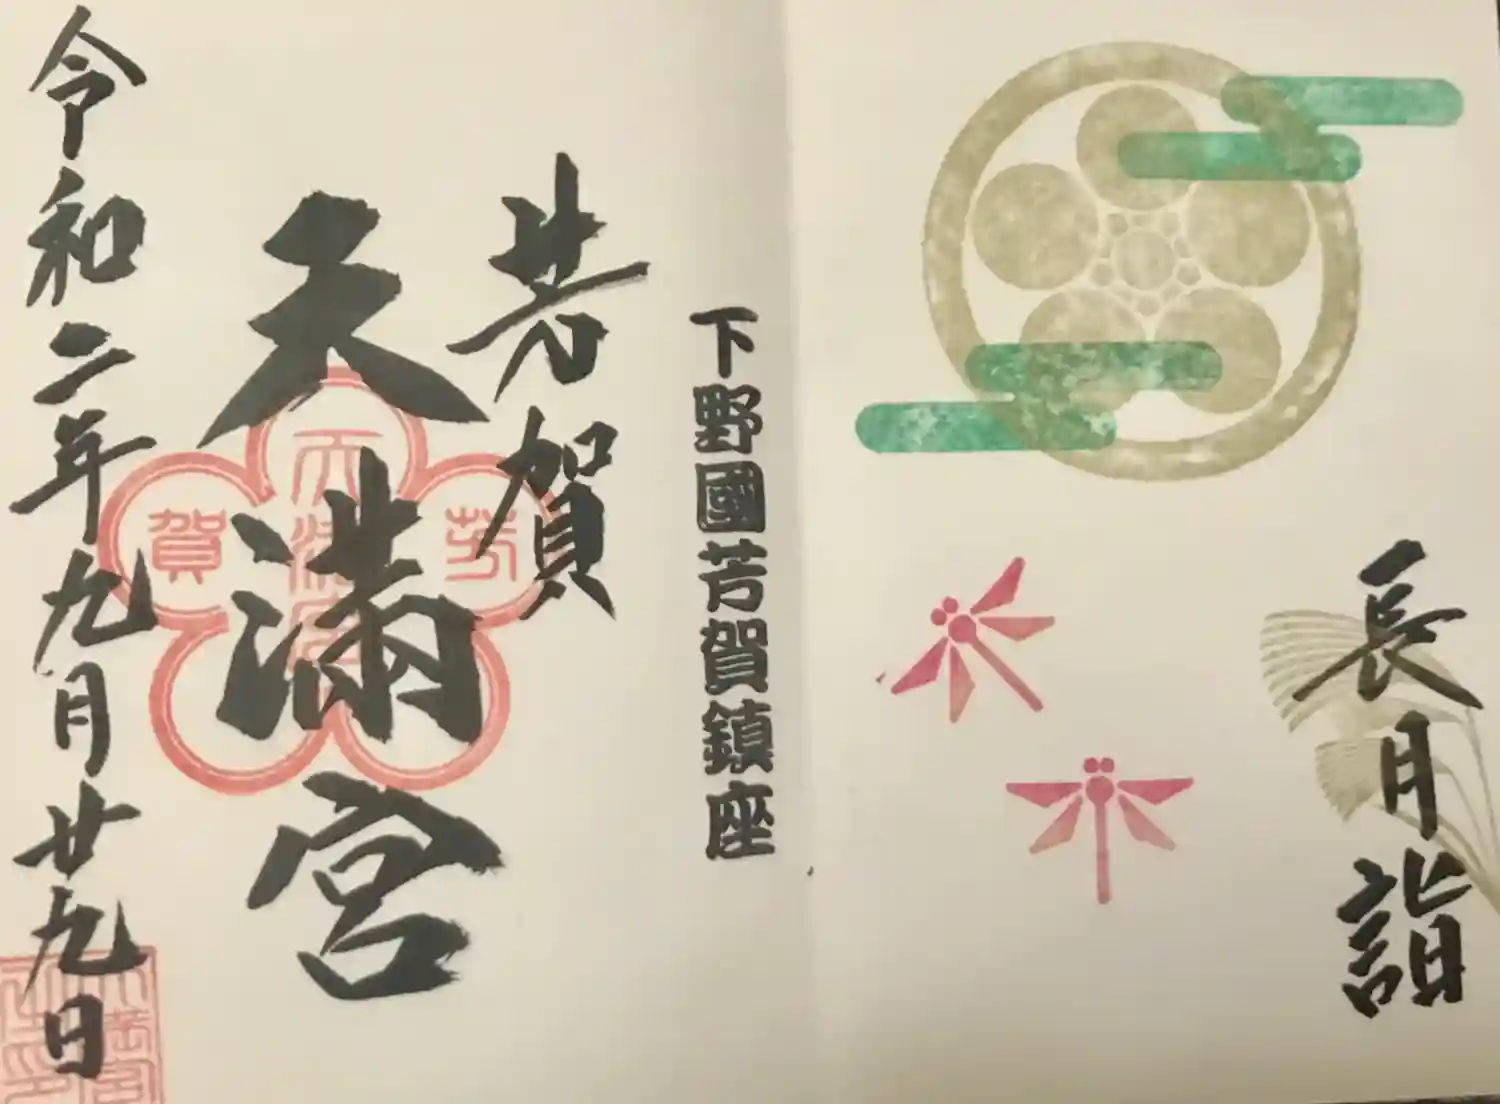 長月詣
下野國芳賀鎮座
芳賀
天満宮
芳
賀
天満宮
令和二年九月廿九日